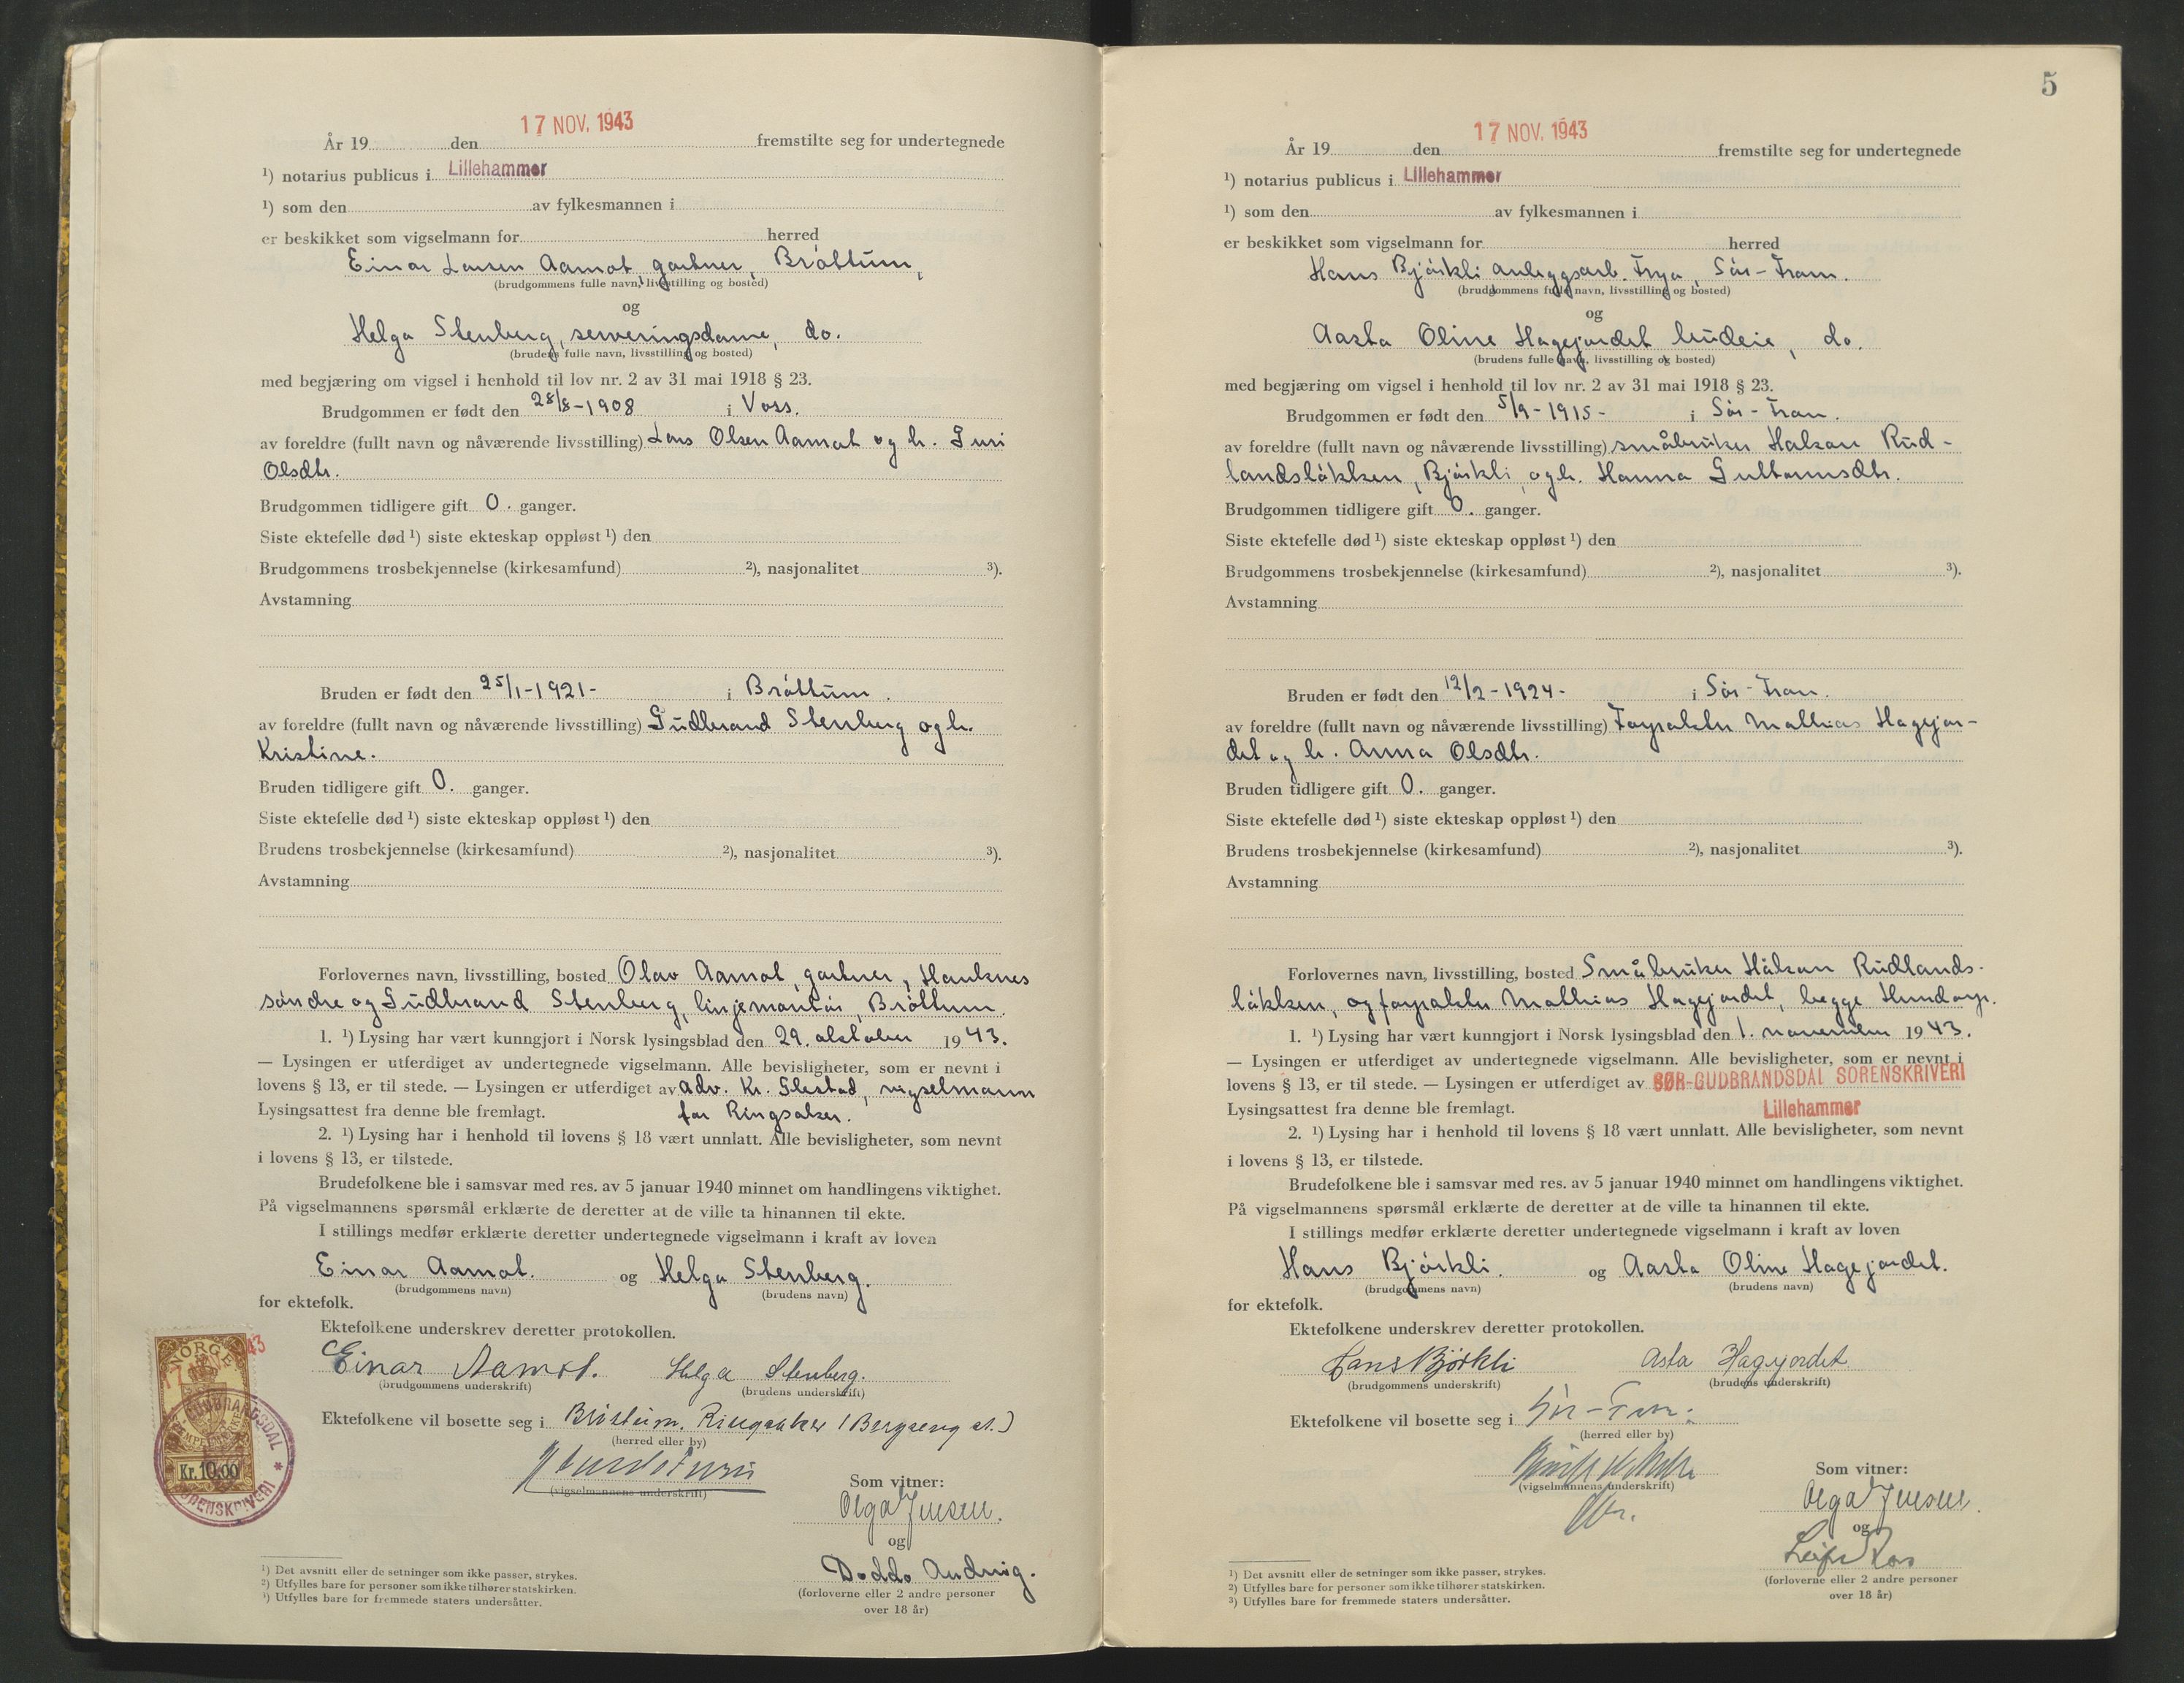 17 NOV. 1943
År 19 den fremstilte seg for undertegnede
¹) notarius publicus i Lillehammer
¹) som den av fylkesmannen i
er beskikket som vigselmann for herred
Einar Larsen Aamot, gartner, Brøttum,
(brudgommens fulle navn, livsstilling og bosted)
og
Helga Stenberg, serveringsdame, do.
(brudens fulle navn, livsstilling og bosted)
med begjæring om vigsel i henhold til lov nr. 2 av 31 mai 1918 § 23.
Brudgommen er født den 28/8-1908 i Voss.
av foreldre (fullt navn og nåværende livsstilling) Lars Olsen Aamot og h. Guri
Olsdtr.
Brudgommen tidligere gift 0. ganger.
Siste ektefelle død ¹) siste ekteskap oppløst ¹) den
Brudgommens trosbekjennelse (kirkesamfund) ²), nasjonalitet ³).
Avstamning
Bruden er født den 25/1-1921- i Brøttum.
av foreldre (fullt navn og nåværende livsstilling) Gudbrand Stenberg og h.
Kristine.
Bruden tidligere gift 0. ganger.
Siste ektefelle død ¹) siste ekteskap oppløst ¹) den
Brudens trosbekjennelse (kirkesamfund) ²), nasjonalitet ³).
Avstamning
Forlovernes navn, livsstilling, bosted Olav Aamot, gartner, Hauknes
søndre og Gudbrand Stenberg, linjemontør, Brøttum.
1. ¹) Lysing har vært kunngjort i Norsk lysingsblad den 29. oktober 1943.
— Lysingen er utferdiget av undertegnede vigselmann. Alle bevisligheter, som er nevnt i
lovens § 13, er til stede. — Lysingen er utferdiget av adv. Kr. Slestad, vigselmann
Lysingsattest fra denne ble fremlagt. for Ringsaker.
2. ¹) Lysing har i henhold til lovens § 18 vært unnlatt. Alle bevisligheter, som nevnt
i lovens § 13, er tilstede.
Brudefolkene ble i samsvar med res. av 5 januar 1940 minnet om handlingens viktighet.
På vigselmannens spørsmål erklærte de deretter at de ville ta hinannen til ekte.
I stillings medfør erklærte deretter undertegnede vigselmann i kraft av loven
Einar Aamot. og Helga Stenberg.
(brudgommens navn) (brudens navn)
for ektefolk.
Ektefolkene underskrev deretter protokollen.
Einar Aamot. Helga Stenberg.
(brudgommens underskrift) (brudens underskrift)
Ektefolkene vil bosette seg i Brøttum, Ringsaker (Bergseng st.)
(herred eller by)
(vigselmannens underskrift)
Som vitner:
Olga Jensen.
og
Doddo Audnig.
(forloverne eller 2 andre personer
over 18 år)
NORGE
Kr. 10,00
SORENSKRIVERI
¹) Det avsnitt eller de setninger som ikke passer, strykes.
²) Utfylles bare for personer som ikke tilhører statskirken.
³) Utfylles bare for fremmede staters undersåtter.
5
17 NOV. 1943
År 19 den fremstilte seg for undertegnede
¹) notarius publicus i Lillehammer
¹) som den av fylkesmannen i
er beskikket som vigselmann for herred
Hans Bjørkli anleggsarb. Frya, Sør-Fron.
(brudgommens fulle navn, livsstilling og bosted)
og
Aasta Oline Hagejordet budeie, do.
(brudens fulle navn, livsstilling og bosted)
med begjæring om vigsel i henhold til lov nr. 2 av 31 mai 1918 § 23.
Brudgommen er født den 5/9-1915- i Sør-Fron.
av foreldre (fullt navn og nåværende livsstilling) småbruker Håkon Rud-
landsløkken, Bjørkli, og h. Hanna Guttormsdtr.
Brudgommen tidligere gift 0. ganger.
Siste ektefelle død ¹) siste ekteskap oppløst ¹) den
Brudgommens trosbekjennelse (kirkesamfund) ²), nasjonalitet ³).
Avstamning
Bruden er født den 12/2-1924- i Sør-Fron.
av foreldre (fullt navn og nåværende livsstilling) Forpakter Mathias Hagejor-
det og h. Anna Olsdtr.
Bruden tidligere gift 0. ganger.
Siste ektefelle død ¹) siste ekteskap oppløst ¹) den
Brudens trosbekjennelse (kirkesamfund) ²), nasjonalitet ³).
Avstamning
Forlovernes navn, livsstilling, bosted Småbruker Håkon Rudlands-
løkken, og forpakter Mathias Hagejordet, begge Hundorp.
1. ¹) Lysing har vært kunngjort i Norsk lysingsblad den 1. november 1943.
— Lysingen er utferdiget av undertegnede vigselmann. Alle bevisligheter, som er nevnt i
lovens § 13, er til stede. — Lysingen er utferdiget av SØR-GUDBRANDSDAL SORENSKRIVERI
Lysingsattest fra denne ble fremlagt. Lillehammer
2. ¹) Lysing har i henhold til lovens § 18 vært unnlatt. Alle bevisligheter, som nevnt
i lovens § 13, er tilstede.
Brudefolkene ble i samsvar med res. av 5 januar 1940 minnet om handlingens viktighet.
På vigselmannens spørsmål erklærte de deretter at de ville ta hinannen til ekte.
I stillings medfør erklærte deretter undertegnede vigselmann i kraft av loven
Hans Bjørkli. og Aasta Oline Hagejordet.
(brudgommens navn) (brudens navn)
for ektefolk.
Ektefolkene underskrev deretter protokollen.
Hans Bjørkli Asta Hagejordet
(brudgommens underskrift) (brudens underskrift)
Ektefolkene vil bosette seg i Sør-Fron.
(herred eller by)
(vigselmannens underskrift)
Som vitner:
Olga Jensen.
og
Leif Ros
(forloverne eller 2 andre personer
over 18 år)
¹) Det avsnitt eller de setninger som ikke passer, strykes.
²) Utfylles bare for personer som ikke tilhører statskirken.
³) Utfylles bare for fremmede staters undersåtter.